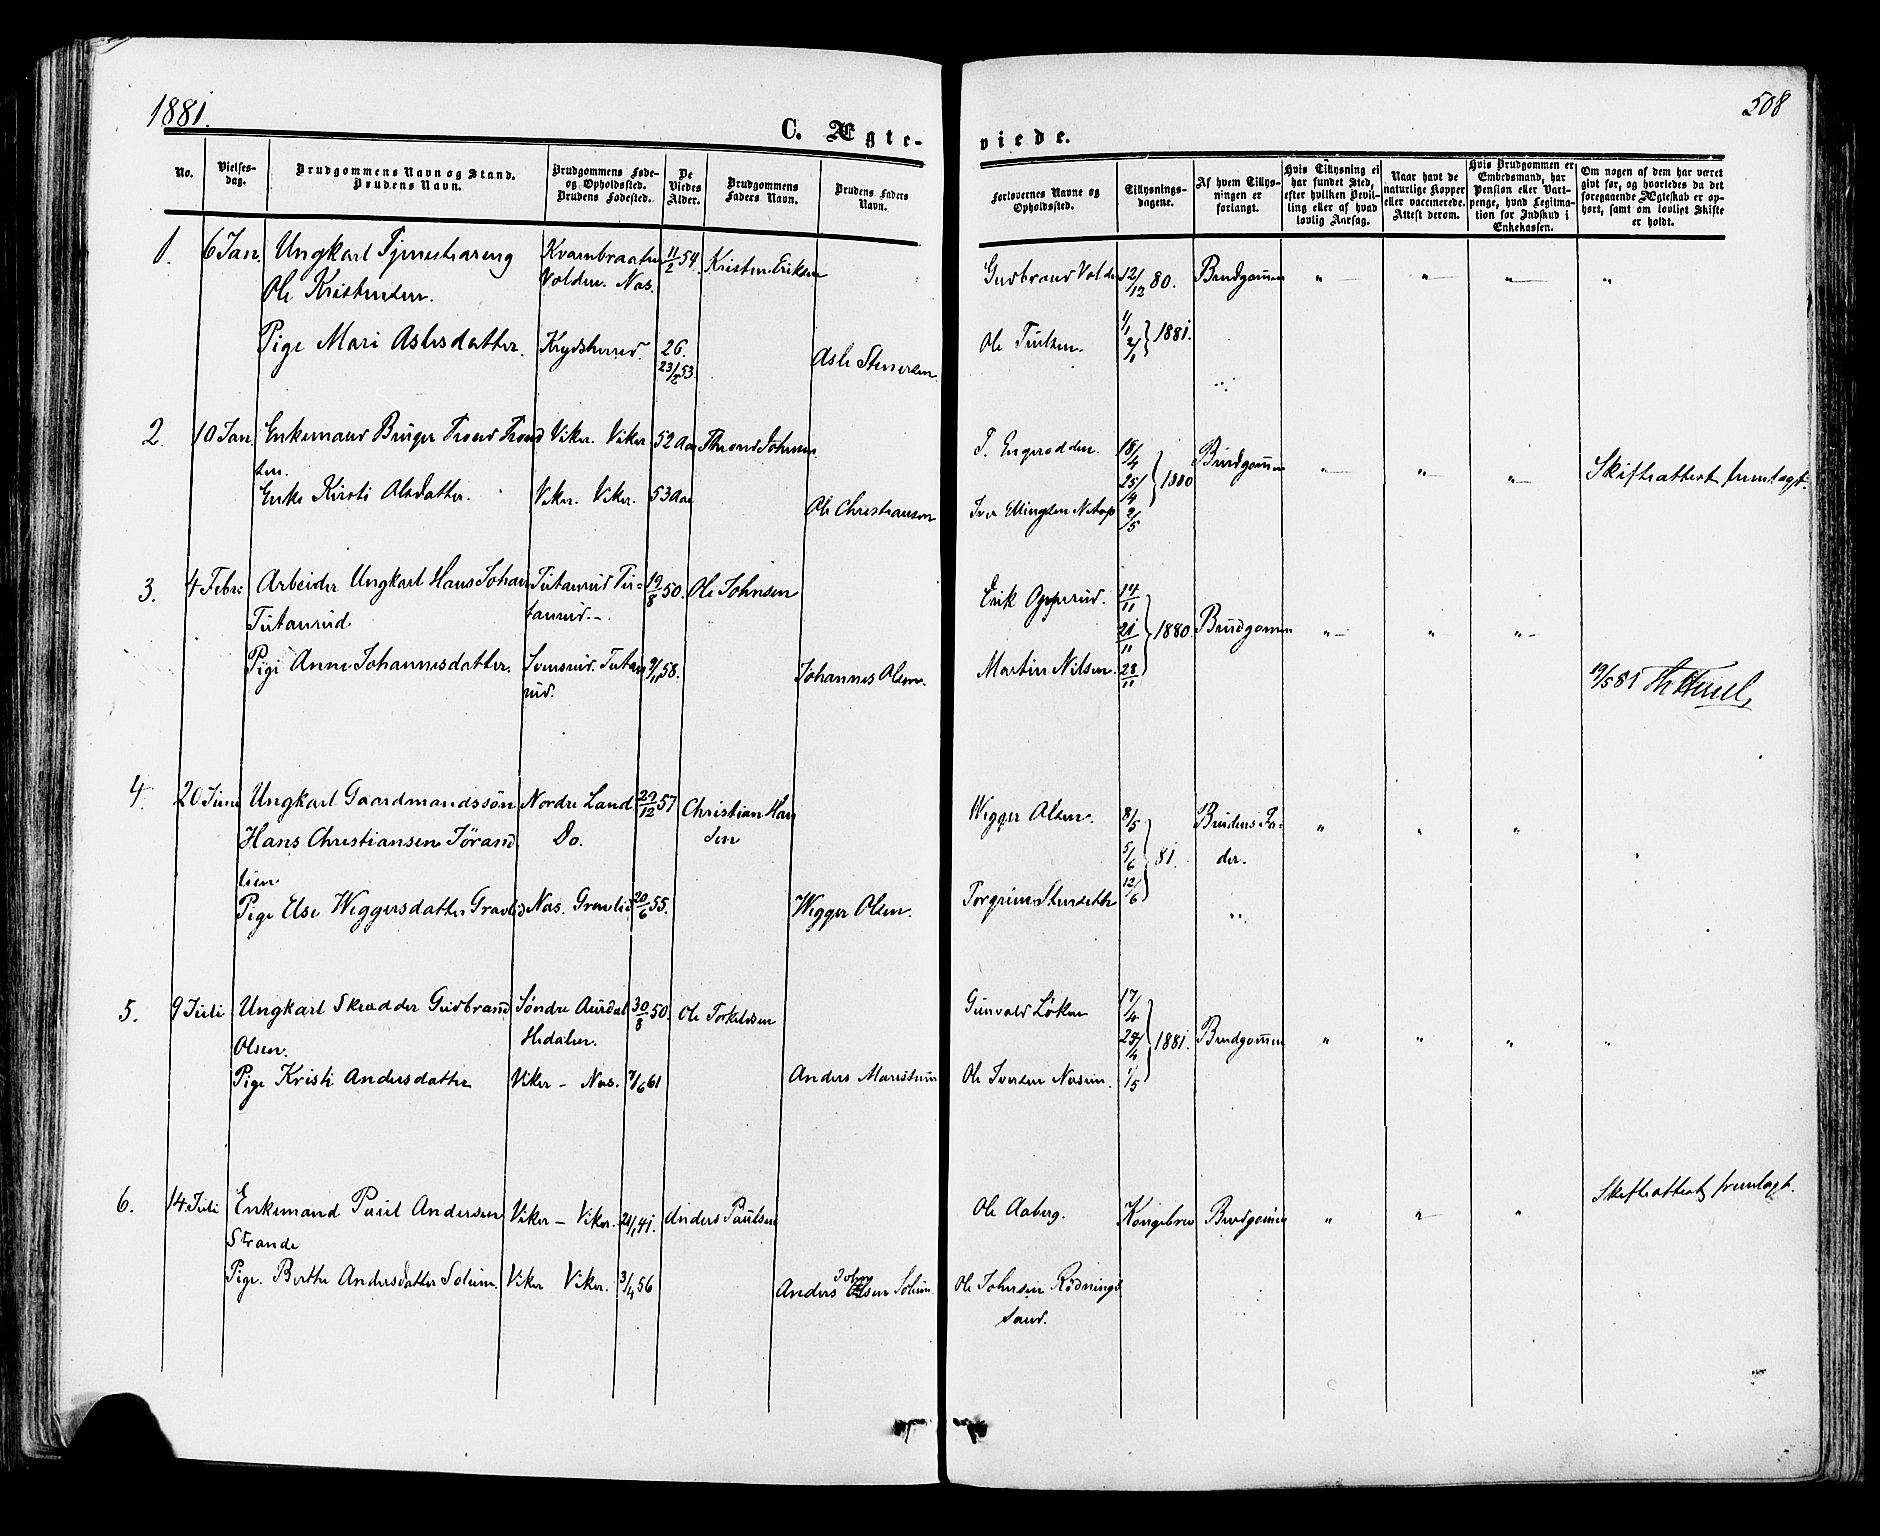 1881.
508
C. Ægte-
viede.
No.
Vielses-
dag.
Brudgommens Navn og Stand.
Brudens Navn.
Brudgommens Føde-
og Opholdssted.
Brudens Fødested.
De
Viedes
Alder.
Brudgommens
Faders Navn.
Brudens Faders
Navn.
Forlovernes Navne og
Opholdssted.
Tillysnings-
dagene.
Af hvem Tillys-
ningen er
forlangt.
Hvis Tillysning ei
har fundet Sted,
efter hvilken Bevil-
ling eller af hvad
lovlig Aarsag.
Naar havt de
naturlige Kopper
eller vaccinerede.
Attest derom.
Hvis Brudgommen er
Embedsmand, har
Pension eller Vart-
penge, hvad Legitima-
tion for Indskud i
Enkekassen.
Om nogen af dem har været
gift før, og hvorledes da det
foregaaende Ægteskab er op-
hørt, samt om lovligt Skifte
er holdt.
1. 6 Jan. Ungkarl Tjenestdreng Kvarnbraaten 11/2 54. Kristen Eriksen Gudbrand Volden 12/12 80. Brudgommen " " " "
Ole Kristensen. Volden. Nas.
Pige Mari Aslesdatter. Krydsherred. 26. 23/2 53. Asle Stenersen Ole Tulsen. 1/1 2/1 } 1881.
2. 10 Jan. Enkemand Bruger Trond Trond Viker. Viker 52 Aar Thrond Johnsen T. Engerodden. 18/4 Brudgommen " " " Skifteattest fremlagt.
sen.
Enke Kirsti Olsdatter. Viker. Viker. 53 Aar Ole Christiansen Iver Ellingsen 25/4 2/5 } 1880
3. 4 Febr. Arbeider Ungkarl Hans Johan Tutanrud Tu- 19/8 50. Ole Johnsen Erik Opperud. 14/11 Brudgommen " " "
Tutanrud tanrud.
21/11 } 1880.
Pige Anne Johannesdatter. Svensrud. Tutan 9/11 58. Johannes Olsen. Martin Nilsen. 28/11 19/5 81
rud.
4. 20 Juni Ungkarl Gaardmandssøn Nordre Land 29/12 57 Christian Han Wegger Olsen. 8/5 Brudens Fa- " " "
Hans Christiansen Jørand Do. sen 5/6 } 81. der.
tsen
Pige Else Weggersdatter Gravlid Nas. Gravlid 20/6 55. Wegger Olsen. Torgrim Stenseth 12/6
5. 9 Juli Ungkarl Skrædder Gudbrand Søndre Aurdal 30/8 50. Ole Torkildsen Gunvald Løken 17/4 Brudgommen " " " "
Olsen. Hedalen. 24/4 } 1881.
Pige Kristi Andersdatter Viker - Nas. 7/6 61 Anders Ole Iversen Nasen. 1/5
6. 14 Juli Enkemand Paul Andersen Viker - Viker. 21/1 41. Anders Paulsen Ole Aaberg. Kongebrev Brudgommen " " " Skifteattest fremlagt.
Strande
Pige. Berthe Andersdatter Solum. Viker Viker. 3/4 56 Anders John Olsen Solum. Ole Johnsen Rødnings
sand.